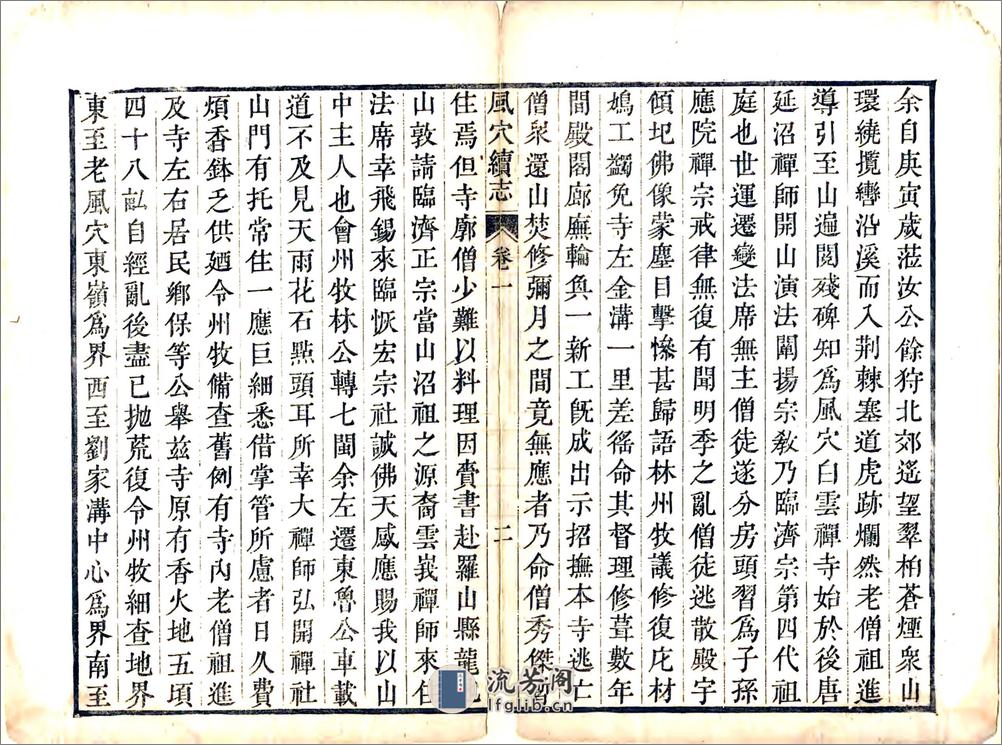 余自庚寅歲蒞汝公餘狩北郊遙望翠柏蒼煙衆山
環繞攬轡沿溪而入荆棘塞道虎跡爛然老僧祖進
導引至山遍閱殘碑知爲風穴白雲禪寺始於後唐
延沼禪師開山演法闡揚宗教乃臨濟宗第四代祖
庭也世運遷變法席無主僧徒遂分房頭習爲子孫
應院禪宗戒律無復有聞明季之亂僧徒逃散殿宇
傾圮佛像蒙塵目擊慘甚歸語林州牧議修復庀材
鳩工蠲免寺左金溝一里差徭命其督理修葺數年
間殿閣廊廡輪奐一新工旣成出示招撫本寺逃亡
僧衆還山焚修彌月之間竟無應者乃命僧秀傑
風穴續志 卷一 二
住焉但寺廓僧少難以料理因賫書赴羅山縣龍
山敦請臨濟正宗當山沼祖之源裔雲峩禪師來住
法席幸飛錫來臨恢宏宗社誠佛天感應賜我以山
中主人也會州牧林公轉七閩余左遷東魯公車載
道不及見天雨花石點頭耳所幸大禪師弘開禪社
山門有托常住一應巨細悉借掌管所慮者日久費
煩香鉢乏供廼令州牧備查舊例有寺內老僧祖進
及寺左右居民鄉保等公舉兹寺原有香火地五頃
四十八畝自經亂後盡已抛荒復令州牧細查地界
東至老風穴東嶺爲界西至劉家溝中心爲界南至
流芳閣
lfglib.cn